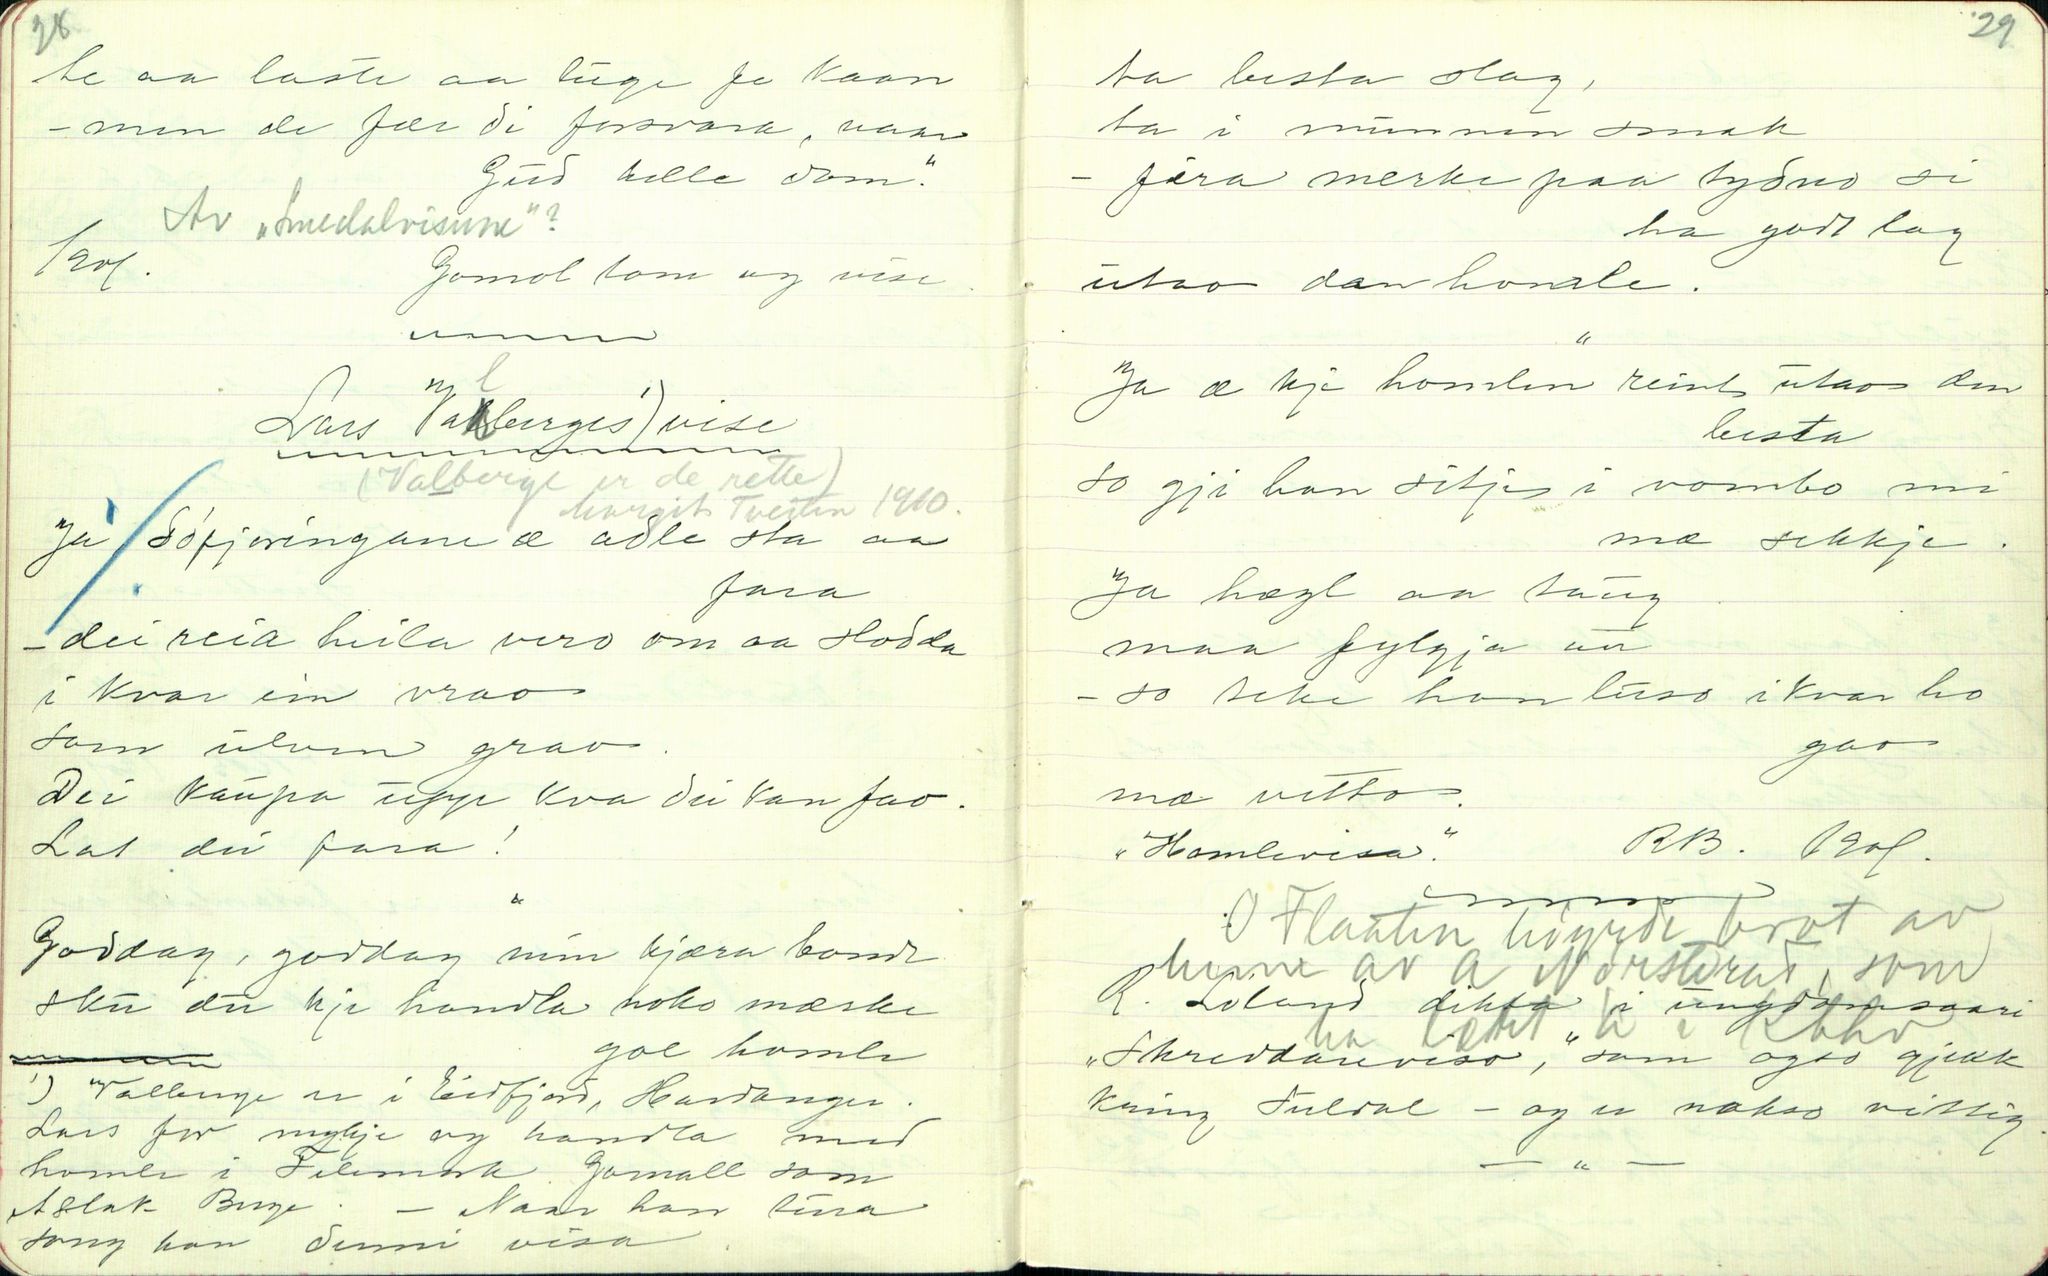 28
te aa laste aa ljuge fe Kaan
- men de fær di forsvara, naar
Gud helle dom."
Av "Smedalvisune"?
1901.
Gomol tone ug vise
Lars Valberges 1) vise
(Valberge er de rette)
Margit Tveiten 1910.
Ja Sofjoringane æ adle sta aa
fara
- dei reia heila vero om aa slodda
i kvar ein vrao
som ulven grao.
Dei kaupa uppe kva dei kan fao.
Lat dei fara!
"
Goddag, goddag min kjæra bonde
sku du kje handla noko mæske
goe homle
1) Valberge er i Eidfjord, Hardanger.
Lars for mykje og handla med
homle i Telemark. Gamall som
Aslak Berge. - Naar han tura
song han denni visa.
29
ta besta slag,
ta i munnen smak
- fera merke paa tydno si
ha godt lag
utao dan homle.
"
Ja æ kje homlen reint utao den
besta
so gji han sitje i vombo mi
mæ sekkje.
Ja hægl aa taug
maa fylgja au
- so teke han luso i kvar ho
gao
mæ vetto.
"Homlevisa". RB. 1901.
I Flaaten høyrde brot av
henne av A Norsterud, som
ha lært
R. Löland dikta i ungdomsaari
"Skreddareviso," som ogso gjekk
kring Suldal - og er nokso vittig.
- " -